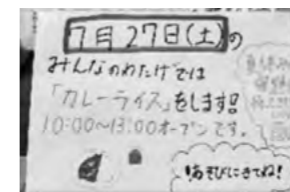 7月27日(土)の
みんなのわたげでは
「カレーライス」をします!!
10:00~13:00オープンです。
あそびにきてね!